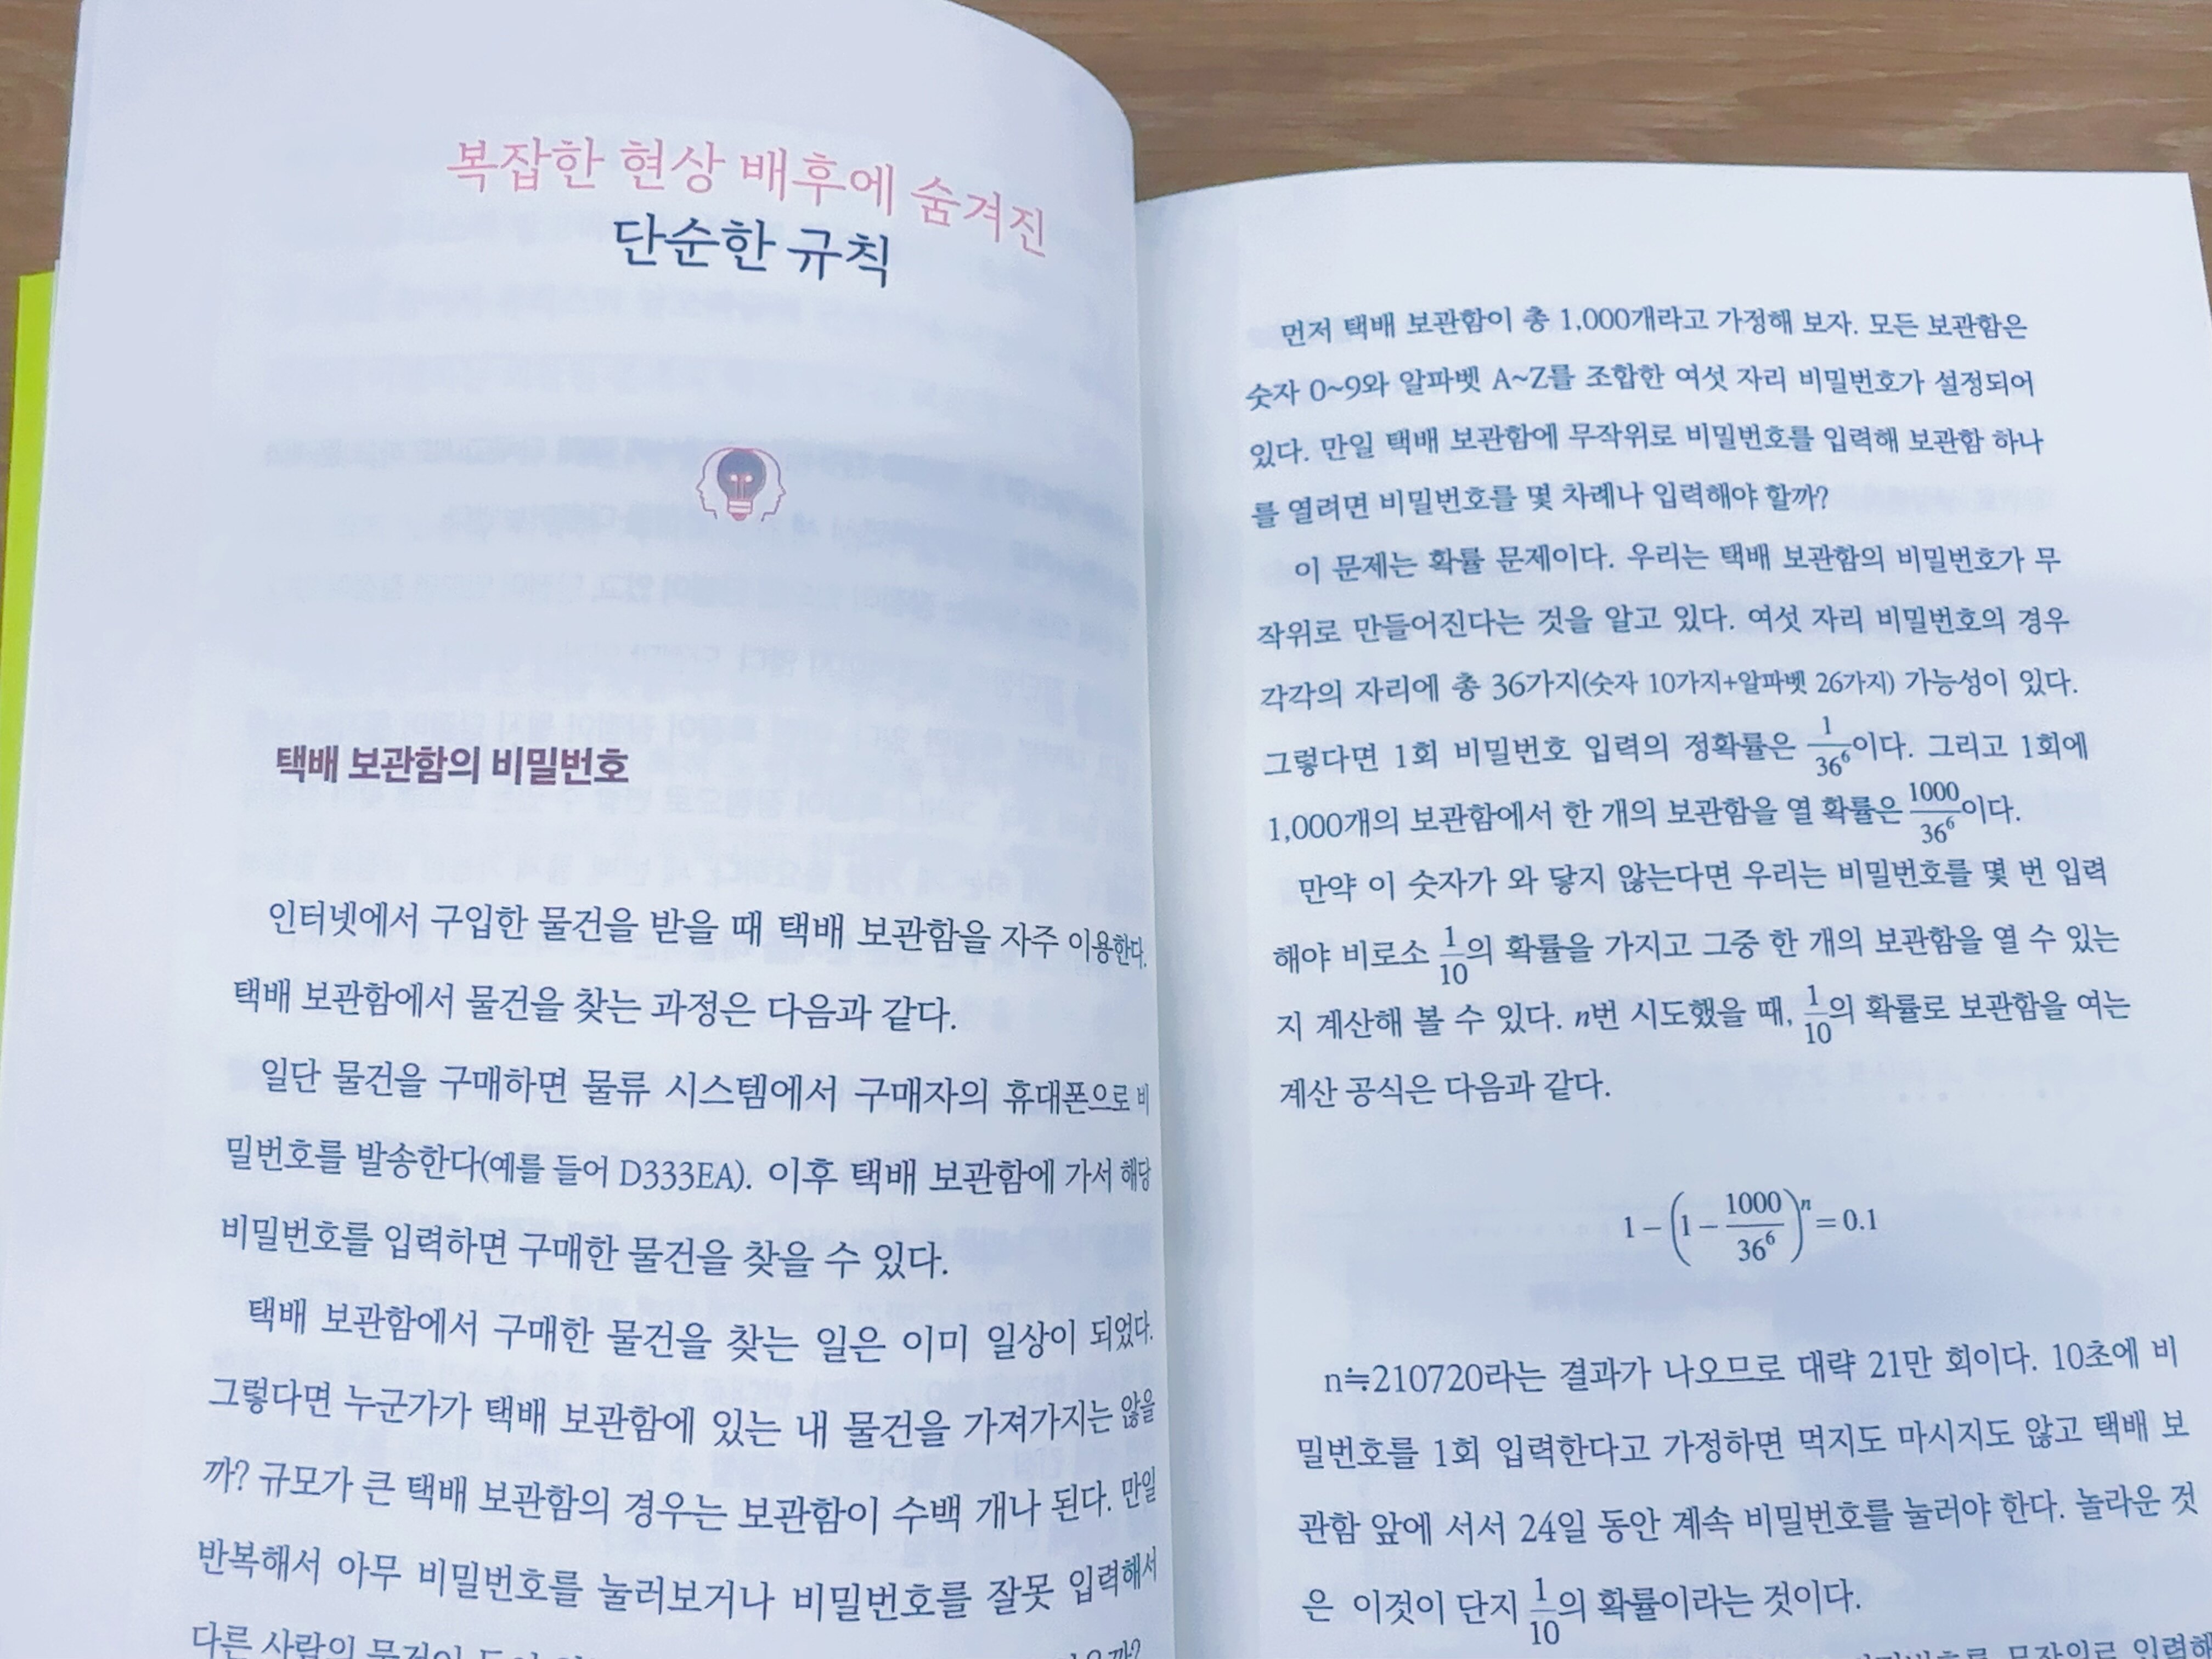 복잡한 현상 배후에 숨겨진
단순한 규칙
택배 보관함의 비밀번호
인터넷에서 구입한 물건을 받을 때 택배 보관함을 자주 이용한다.
택배 보관함에서 물건을 찾는 과정은 다음과 같다.
일단 물건을 구매하면 물류 시스템에서 구매자의 휴대폰으로 비
밀번호를 발송한다(예를 들어 D333EA). 이후 택배 보관함에 가서 해당
비밀번호를 입력하면 구매한 물건을 찾을 수 있다.
택배 보관함에서 구매한 물건을 찾는 일은 이미 일상이 되었다.
그렇다면 누군가가 택배 보관함에 있는 내 물건을 가져가지는 않을
까? 규모가 큰 택배 보관함의 경우는 보관함이 수백 개나 된다. 만일
반복해서 아무 비밀번호를 눌러보거나 비밀번호를 잘못 입력해서
다른 사람의 물건이
먼저 택배 보관함이 총 1,000개라고 가정해 보자. 모든 보관함은
숫자 0~9와 알파벳 A~Z를 조합한 여섯 자리 비밀번호가 설정되어
있다. 만일 택배 보관함에 무작위로 비밀번호를 입력해 보관함 하나
를 열려면 비밀번호를 몇 차례나 입력해야 할까?
이 문제는 확률 문제이다. 우리는 택배 보관함의 비밀번호가 무
작위로 만들어진다는 것을 알고 있다. 여섯 자리 비밀번호의 경우
각각의 자리에 총 36가지(숫자 10가지+알파벳 26가지) 가능성이 있다.
그렇다면 1회 비밀번호 입력의 정확률은 1/36⁶이다. 그리고 1회에
1,000개의 보관함에서 한 개의 보관함을 열 확률은 1000/36⁶이다.
만약 이 숫자가 와 닿지 않는다면 우리는 비밀번호를 몇 번 입력
해야 비로소 1/10의 확률을 가지고 그중 한 개의 보관함을 열 수 있는
지 계산해 볼 수 있다. n번 시도했을 때, 1/10의 확률로 보관함을 여는
계산 공식은 다음과 같다.
1-(1-1000/36⁶)ⁿ=0.1
n≒210720라는 결과가 나오므로 대략 21만 회이다. 10초에 비
밀번호를 1회 입력한다고 가정하면 먹지도 마시지도 않고 택배 보
관함 앞에 서서 24일 동안 계속 비밀번호를 눌러야 한다. 놀라운 것
은 이것이 단지 1/10의 확률이라는 것이다.
무작위로 입력해